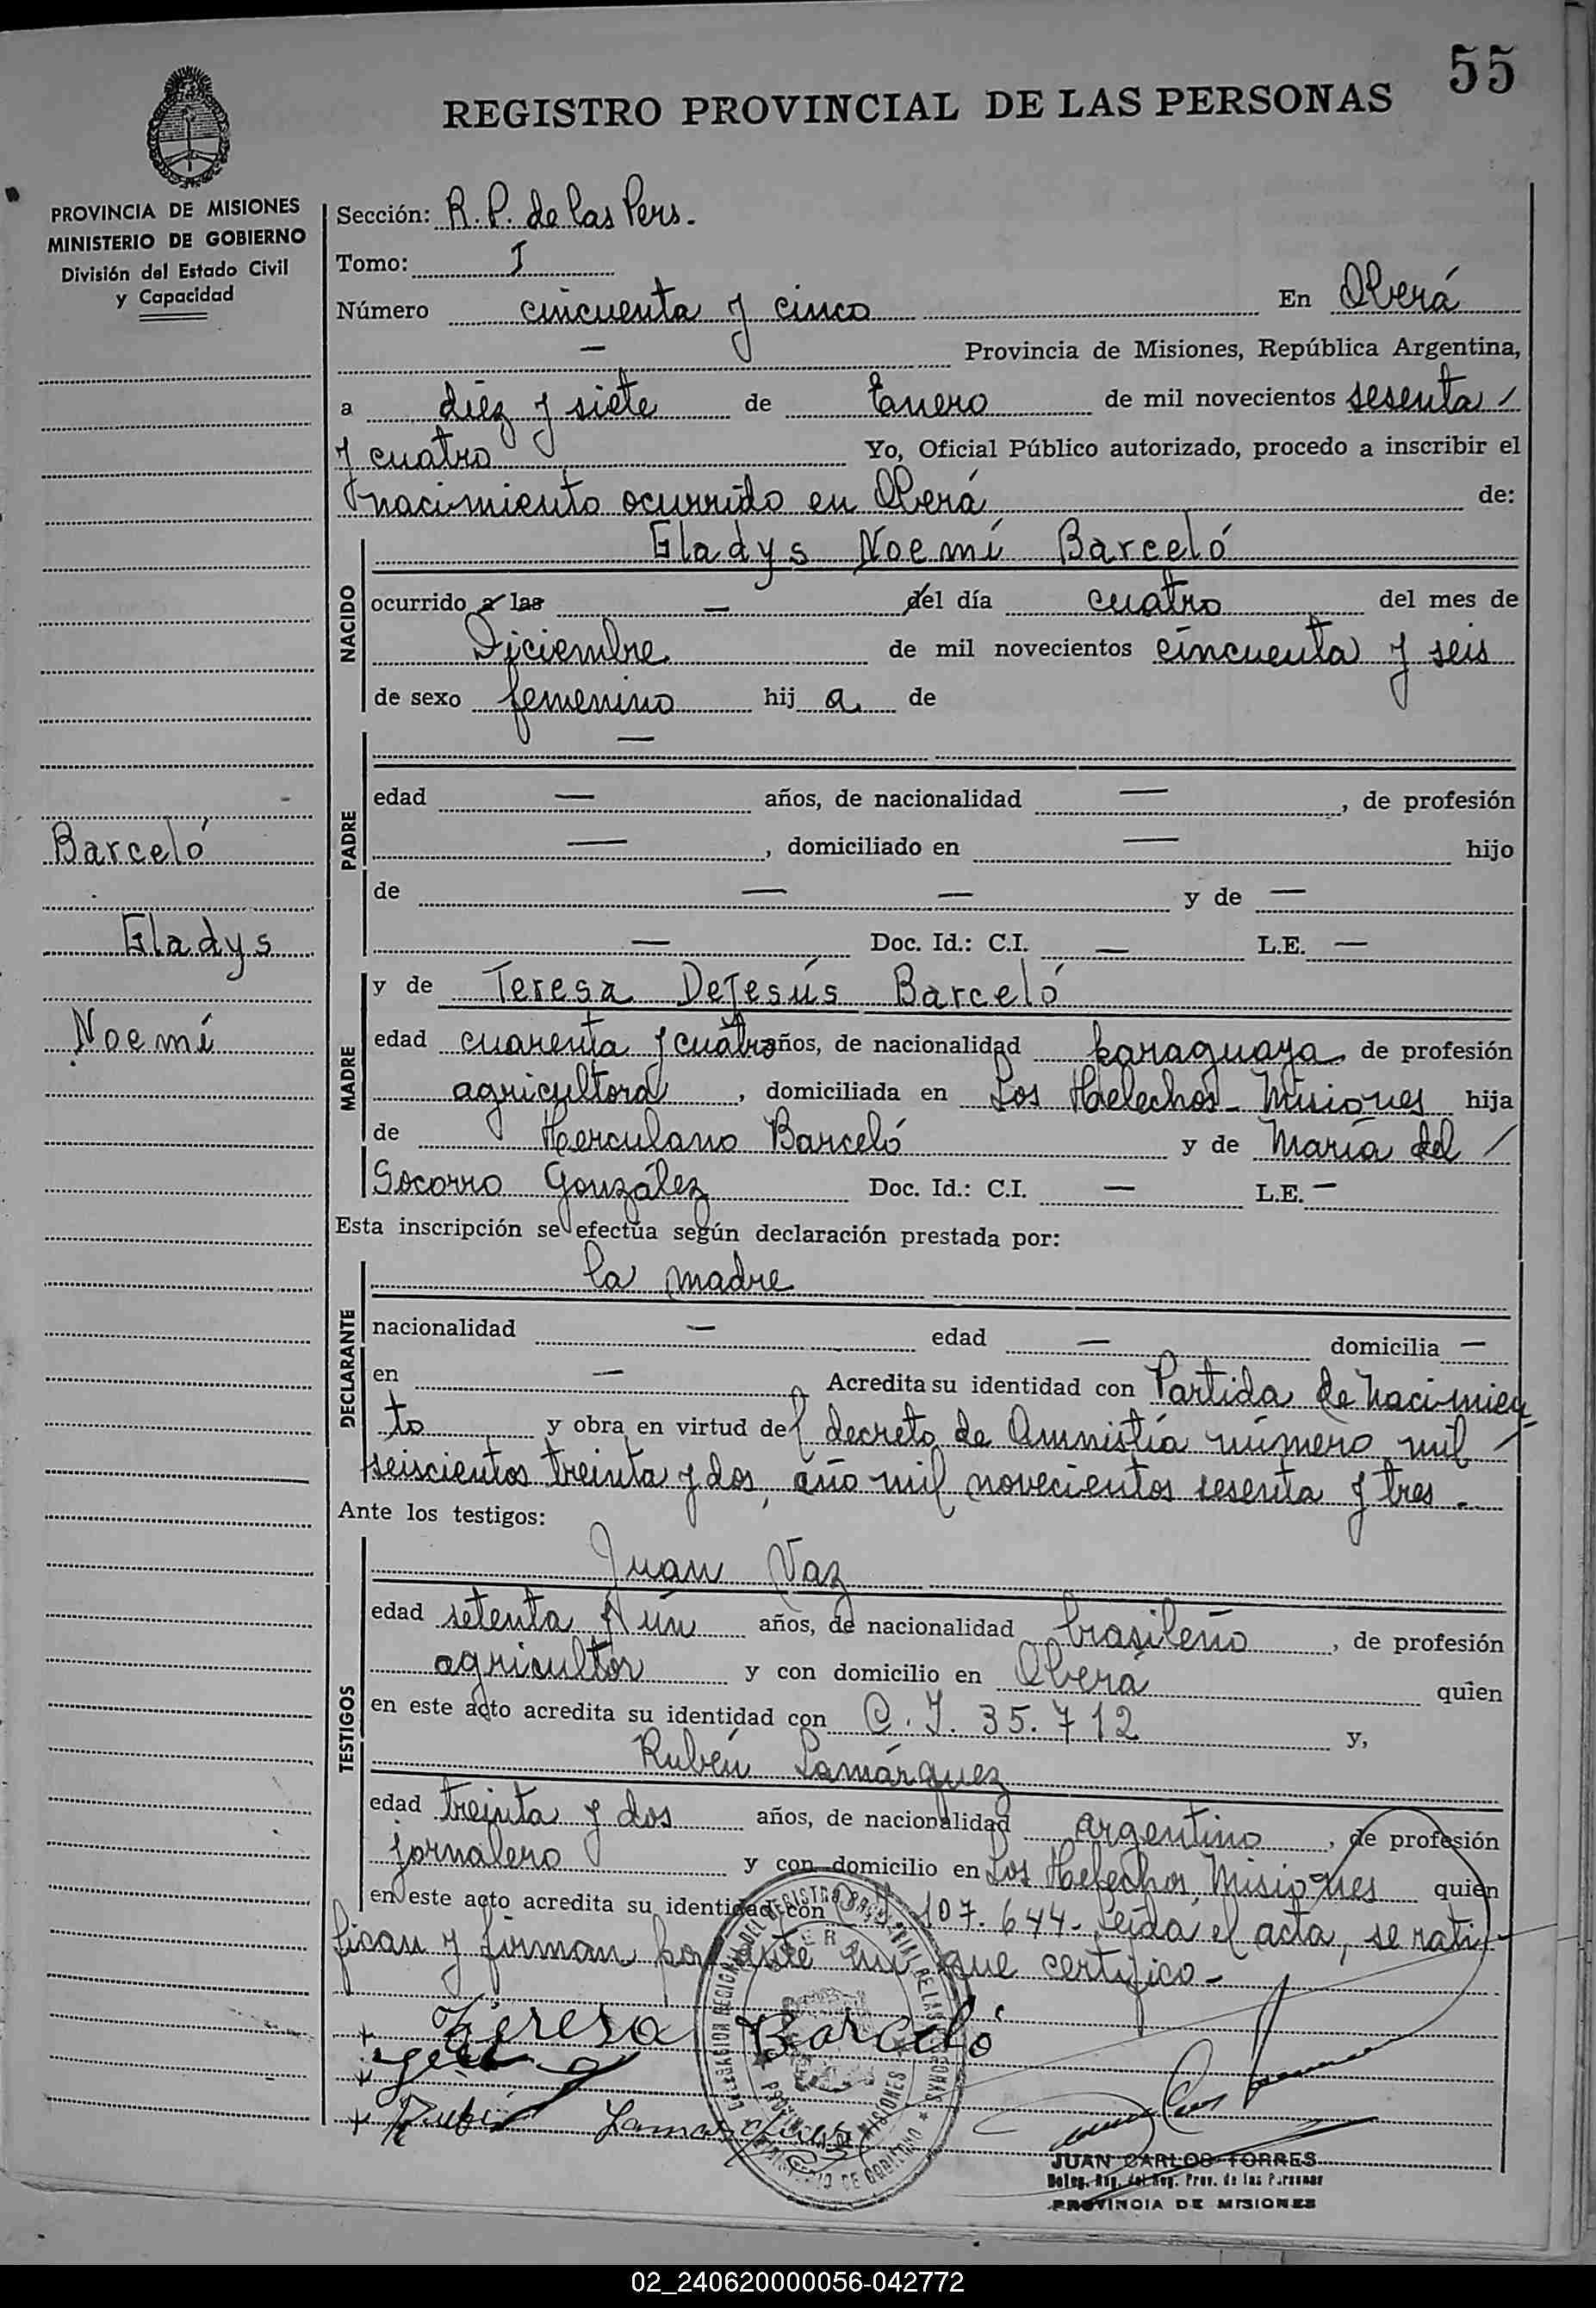 55
REGISTRO PROVINCIAL DE LAS PERSONAS
PROVINCIA DE MISIONES
MINISTERIO DE GOBIERNO
División del Estado Civil
y Capacidad
Sección: R. P. de las Pers.
Tomo: I
Número cincuenta y cinco En Oberá
— Provincia de Misiones, República Argentina,
a diez y siete de Enero de mil novecientos sesenta /
y cuatro Yo, Oficial Público autorizado, procedo a inscribir el
nacimiento ocurrido en Oberá de:
Gladys Noemí Barceló
NACIDO
ocurrido a las — del día cuatro del mes de
Diciembre de mil novecientos cincuenta y seis
de sexo femenino hij a de
—
PADRE
edad — años, de nacionalidad —, de profesión
—, domiciliado en — hijo
de — — y de —
— Doc. Id.: C.I. — L.E. —
Barceló
Gladys
Noemí
MADRE
y de Teresa DeJesús Barceló
edad cuarenta y cuatro años, de nacionalidad paraguaya, de profesión
agricultora, domiciliada en Los Helechos - Misiones hija
de Herculano Barceló y de María del /
Socorro González Doc. Id.: C.I. — L.E. —
Esta inscripción se efectúa según declaración prestada por:
la madre
DECLARANTE
nacionalidad — edad — domicilia —
en — Acredita su identidad con Partida de nacimien
to y obra en virtud del decreto de Amnistía número mil /
seiscientos treinta y dos, año mil novecientos sesenta y tres.-
Ante los testigos:
Juan Vaz
TESTIGOS
edad setenta y ún años, de nacionalidad brasileño, de profesión
agricultor y con domicilio en Oberá quien
en este acto acredita su identidad con C. I. 35.712 y,
Rubén Lamárquez
edad treinta y dos años, de nacionalidad argentino, de profesión
jornalero y con domicilio en Los Helechos, Misiones quien
en este acto acredita su identidad con 107.644- Leída el acta, se rati
fican y firman por ante mi que certifico-
Teresa Barceló
Rubén Lamarquez
DELEGACION REGIONAL DEL REGISTRO PROVINCIAL DE LAS PERSONAS
PROVINCIA DE MISIONES
MINISTERIO DE GOBIERNO
JUAN CARLOS TORRES
Deleg. Reg. del Reg. Prov. de las Personas
PROVINCIA DE MISIONES
02_240620000056-042772